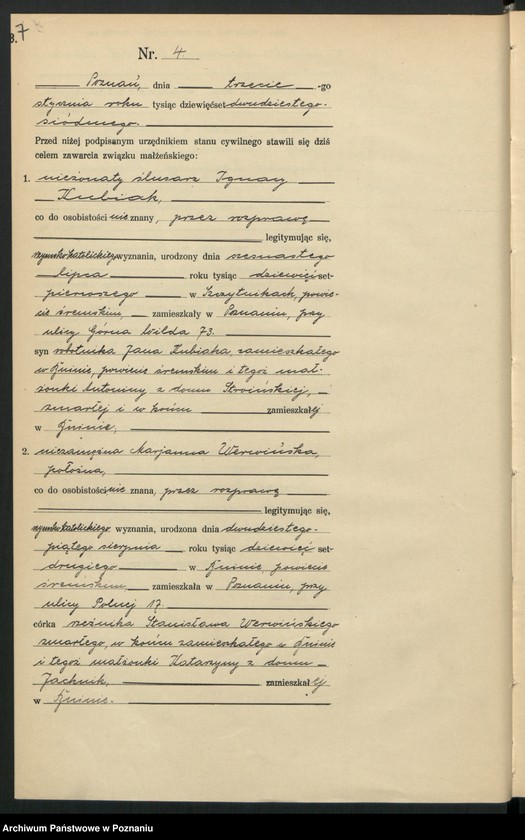 B.7
Nr. 4
Poznań, dnia trzecie -go
stycznia roku tysiąc dziewięćset dwudziestego-
siódmego.
Przed niżej podpisanym urzędnikiem stanu cywilnego stawili się dziś
celem zawarcia związku małżeńskiego:
1. nieżonaty ślusarz Ignacy
Kubiak,
co do osobistości nie znany, przez rozprawę
legitymując się,
rzymsko katolickiego wyznania, urodzony dnia
lipca roku tysiąc dziewięćset-
pierwszego w Szczytnikach, powie-
cie śremskim, zamieszkały w Poznaniu, przy
ulicy Górna Wilda 73.
syn robotnika Jana Kubiaka, zamieszkałego
w Kninie, powiecie śremskim i tegoż mał-
żonki Antoniny z domu
zmarłej i w końcu zamieszkałej
w Kninie.
2. niezamężna Marjanna Werwińska,
położna,
co do osobistości nie znana, przez rozprawę
legitymując się,
rzymsko katolickiego wyznania, urodzona dnia dwudziestego-
piątego sierpnia roku tysiąc dziewięć set-
drugiego w Kninie, powiecie
śremskim zamieszkała w Poznaniu, przy
ulicy Polnej 17.
córka rzeźnika Stanisława Werwińskiego
zmarłego, w końcu zamieszkałego w Kninie
i tegoż małżonki Katarzyny z domu
Jachnik, zamieszkałej
w Kninie.
Archiwum Państwowe w Poznaniu